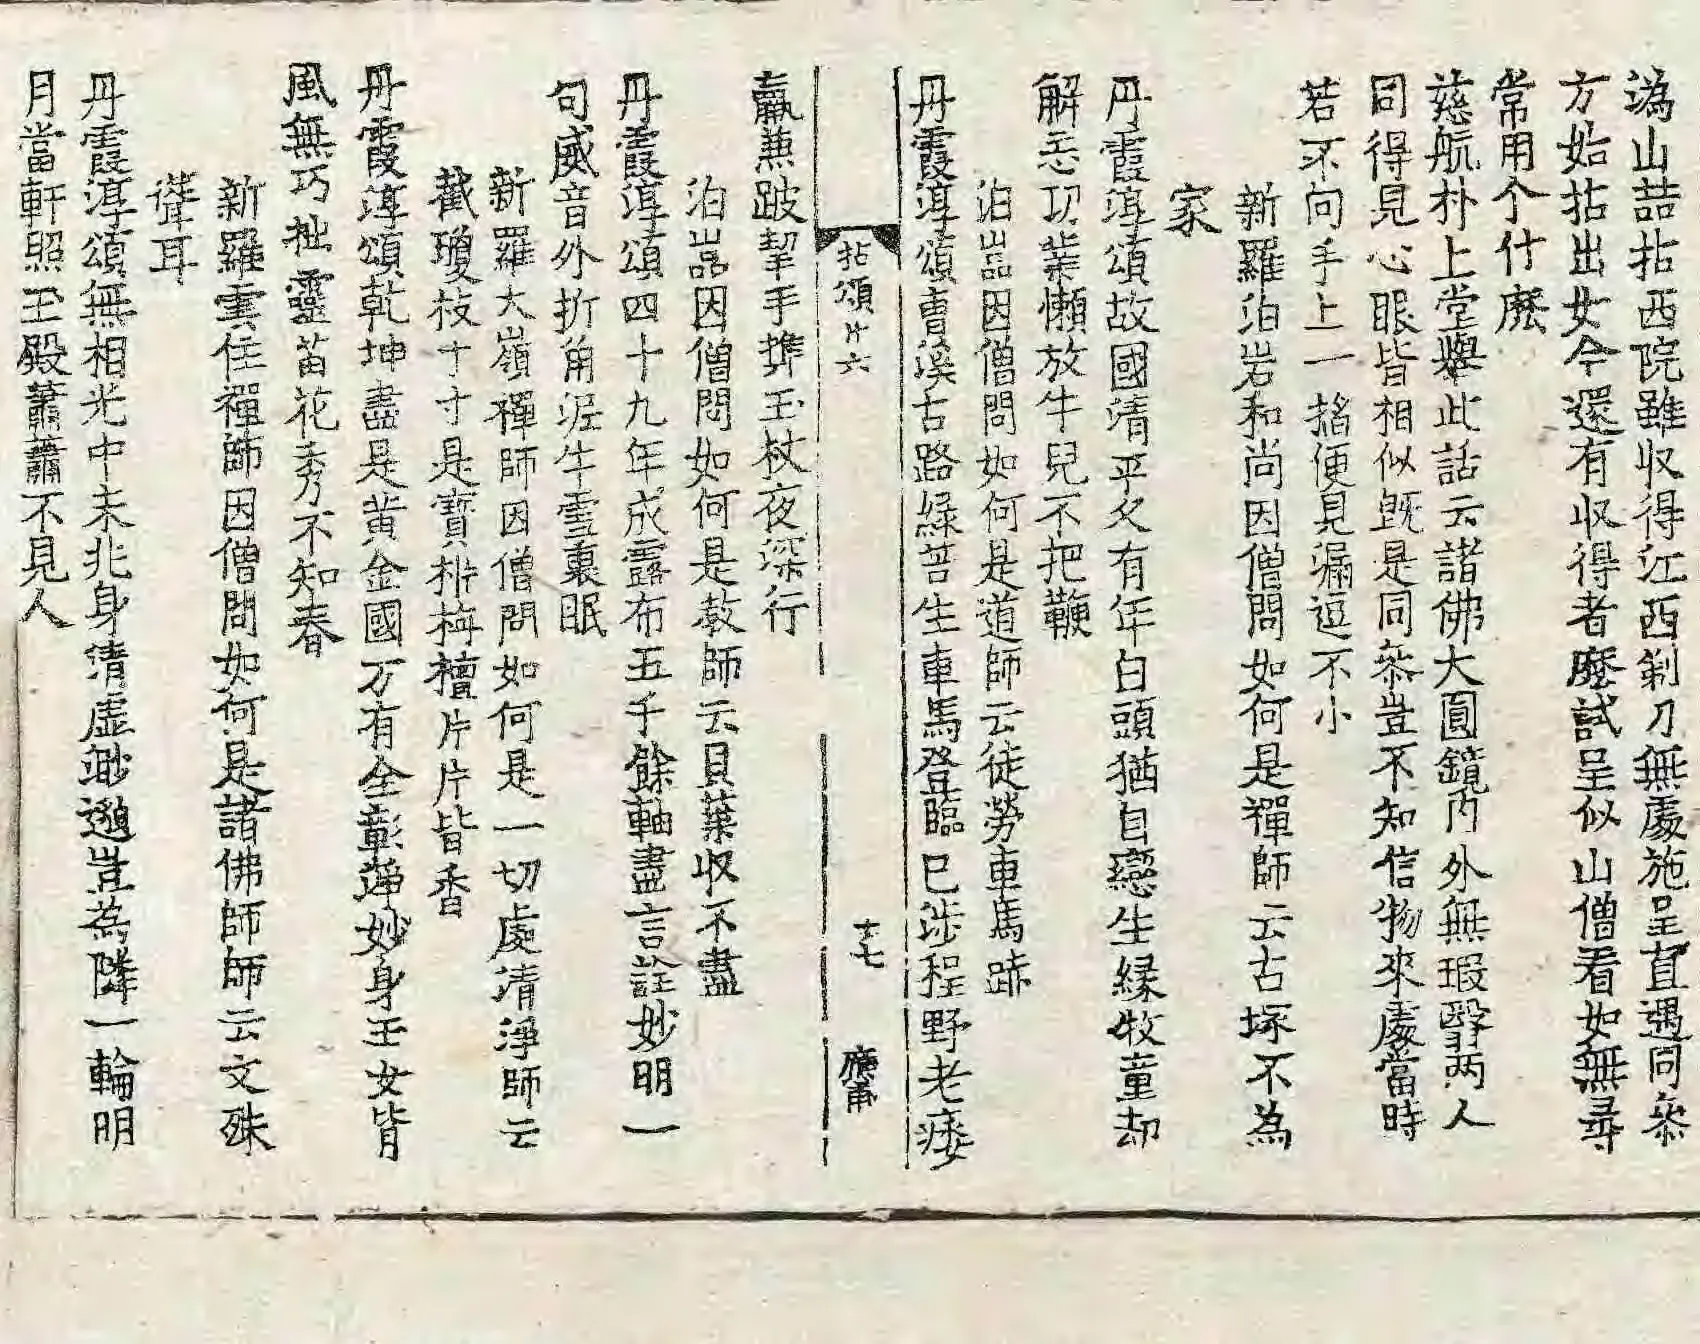 溈山喆拈西院雖收得江西剃刀無處施呈直遇同叅
方始拈出女今還有收得者麽試呈似山僧看如無尋
常用个什麽
慈航朴上堂擧此話云諸佛大圓鏡內外無瑕翳兩人
同得見心眼皆相似旣是同叅豈不知信物來處當時
若不向手上一搯便見漏逗不小
新羅泊岩和尚因僧問如何是禪師云古塚不為
家
丹霞淳頌故國清平久有年白頭猶自戀生緣牧童却
解忘功業懶放牛兒不把鞭
泊嵓因僧問如何是道師云徒勞車馬跡
丹霞淳頌曹溪古路綠苔生車馬登臨已涉程野老痿
拈頌片六
十七
羸兼跛挈手携玉杖夜深行
泊嵓因僧問如何是敎師云貝葉收不盡
丹霞淳頌四十九年成露布五千餘軸盡言詮妙明一
句威音外折角泥牛雪裏眠
新羅大嶺禪師因僧問如何是一切處清淨師云
截瓊枝寸寸是寶析栴檀片片皆香
丹霞淳頌乾坤盡是黃金國万有全彰淨妙身玉女背
風無巧拙靈苗花秀不知春
新羅雲住禪師因僧問如何是諸佛師師云文殊
聳耳
丹霞淳頌無相光中未兆身清虛渺邈豈為隣一輪明
月當軒照玉殿蕭蕭不見人